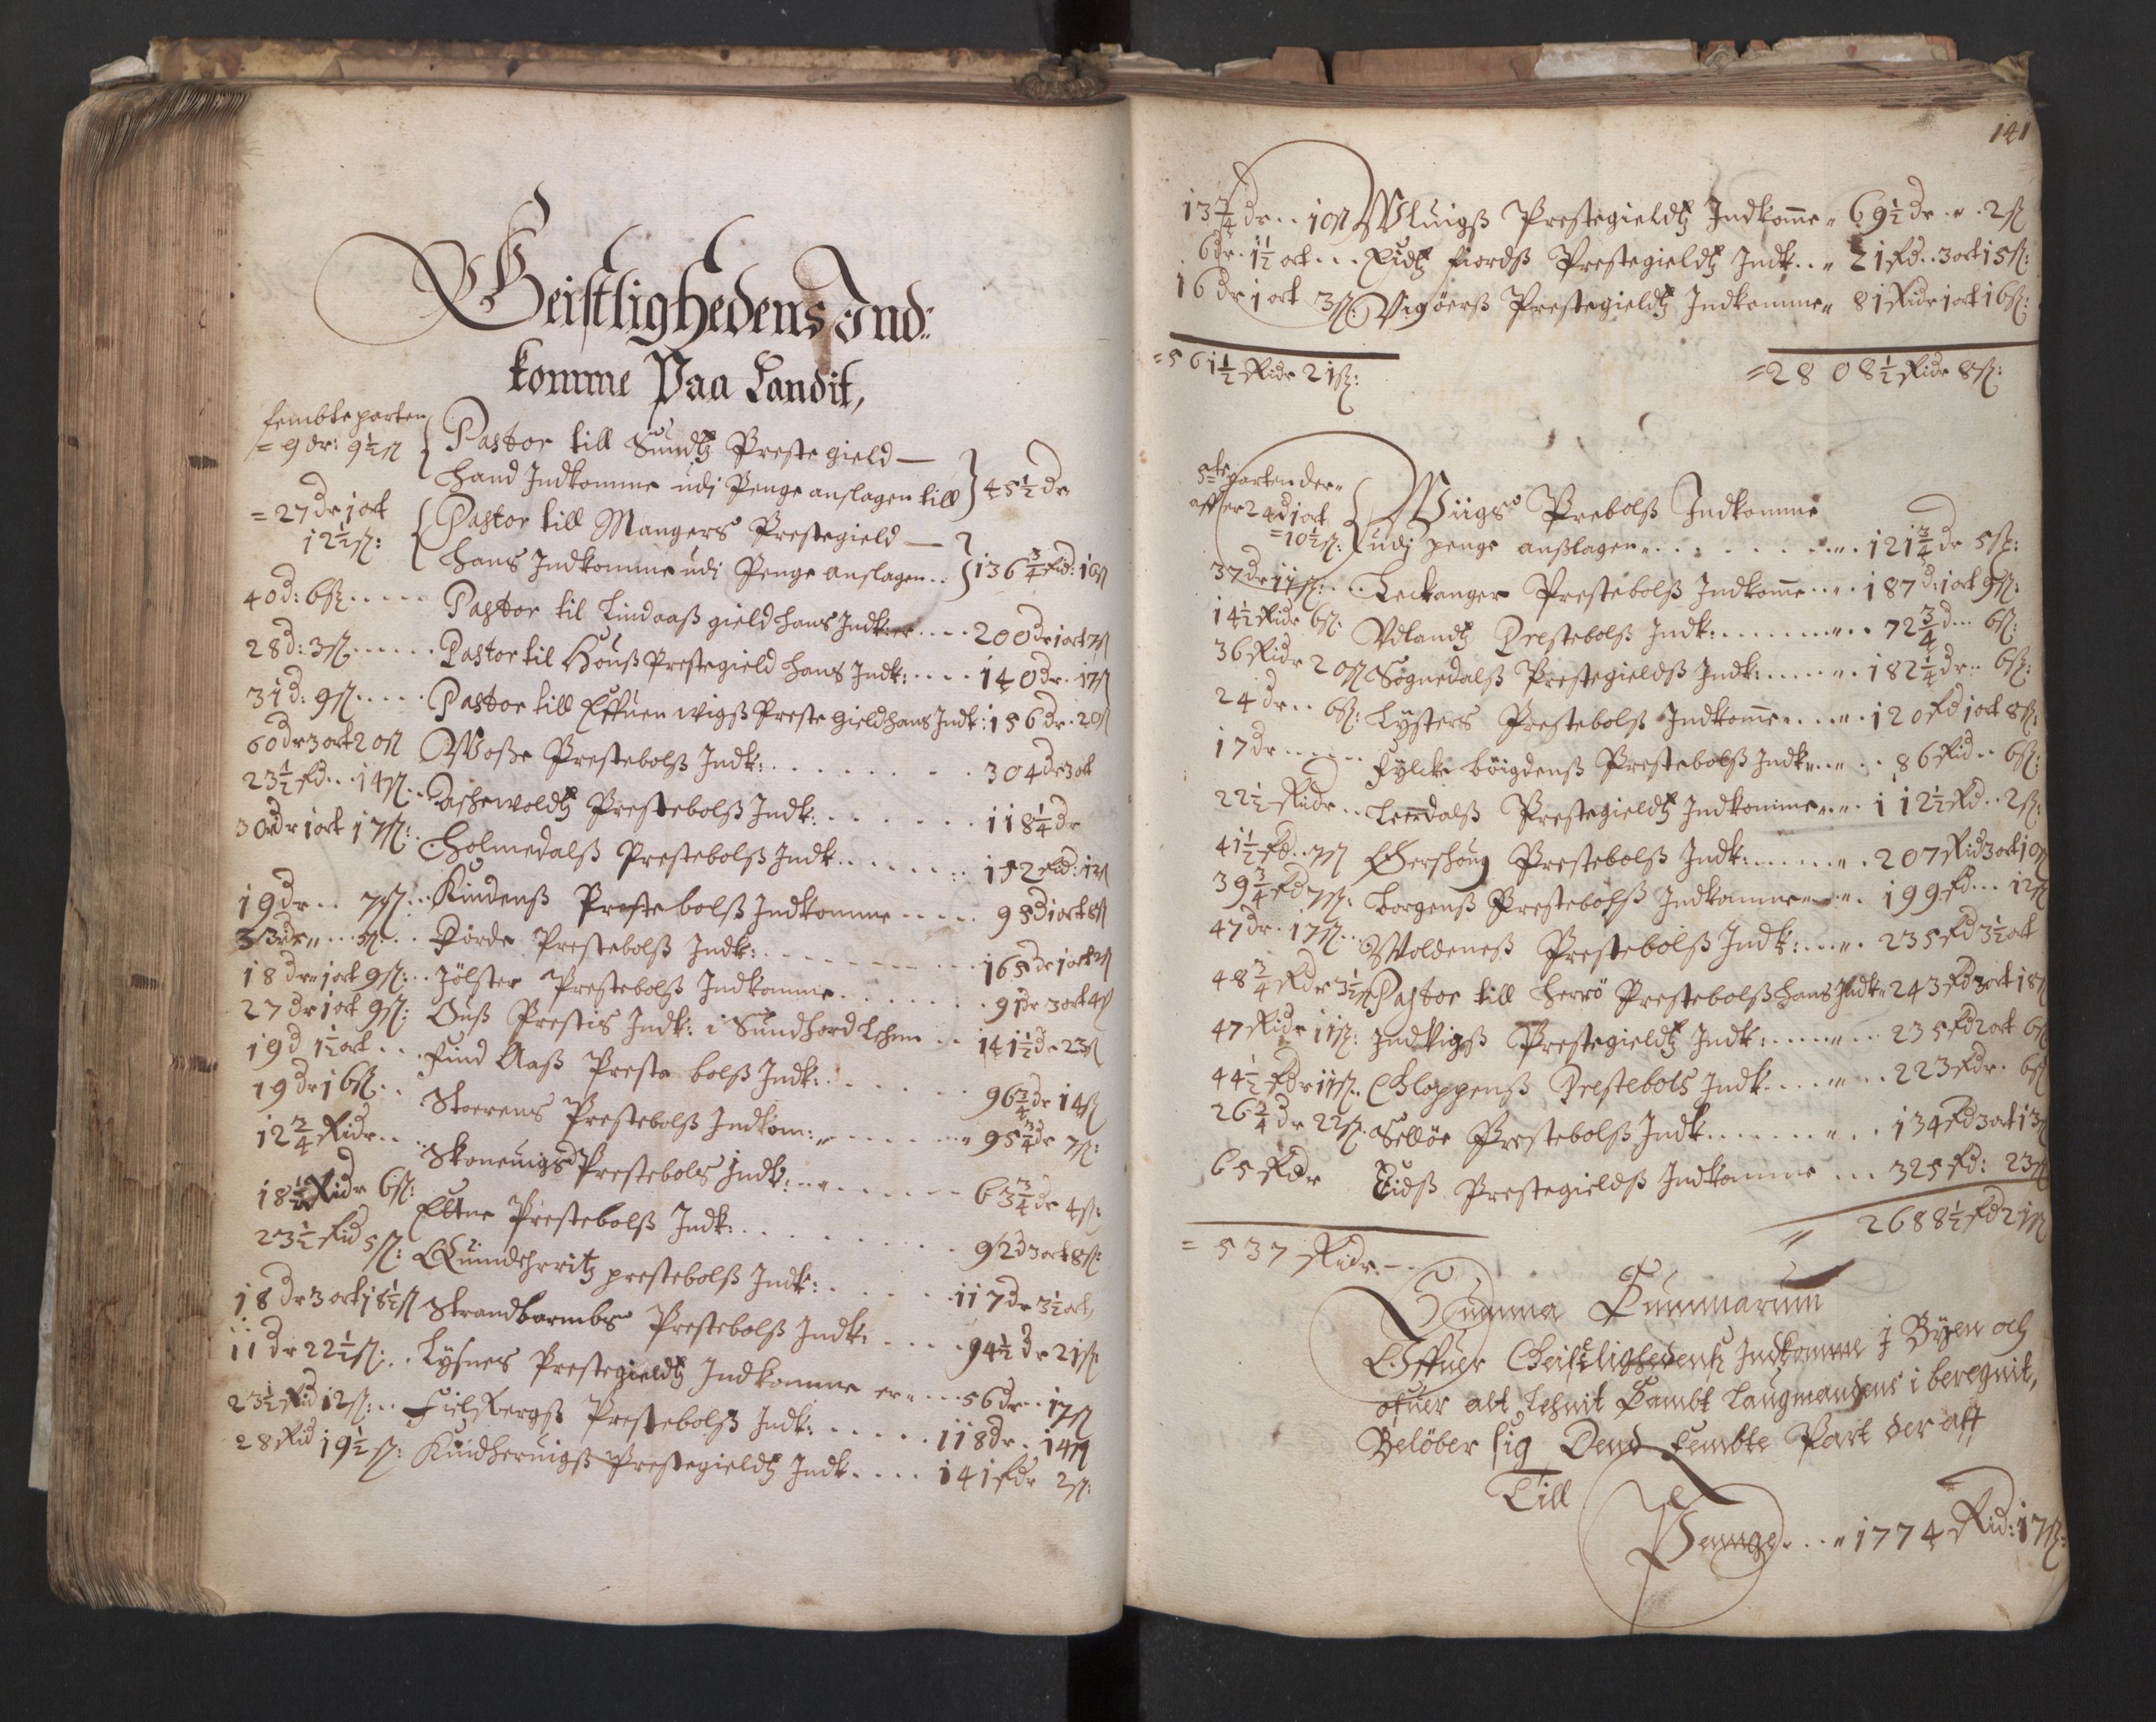 Geistlighedens Ind:
komme Paa Landit,
fembteparten
= 9 dr: 9½ ß
Pastor till Sundtz Preste gield —
Hand Indkomme udi Penge anslagen till } 45½ dr
= 27 dr 1 ort
12½ ß:
Pastor till Mangers Prestegield —
Hans Indkomme udi Penge anslagen .. } 136¾ Rd: 16 ß
40 d: 6 ß ..... Pastor til Lindaaß gield Hans Indk: er .... 200 dr 1 ort 7 ß
28 d: 3 ß ...... Pastor til Houß Prestegield Hans Indk: .... 140 dr . 17 ß
31 d: 9 ß ..... Pastor till Effuen wigß Preste gield Hans Indk: 156 dr . 20 ß
60 dr 3 ort 20 ß Woße Prestebolß Indk: ........ 304 dr 3 ort
23½ Rd .. 14 ß .. Aschewoldtz Prestebolß Indk: ....... 118¼ dr
30 dr 1 ort 17 ß: .. Holmedalß Prestebolß Indk ........ 152 Rd: 12 ß
19 dr .. 7 ß .. Kindenß Preste bolß Indkomme ..... 95 d 1 ort 8 ß
33 dr .. ß ... Förde Prestebolß Indk: ......... 165 dr 1 ort ß
18 dr 1 ort 9 ß: .. Jölster Prestebolß Indkomme ....... 91 dr 3 ort 4 ß
27 dr 1 ort 9 ß: Ouß Prestis Indk: i Sundhord Lehnn .. 141½ dr 23 ß
19 d 1½ ort ... Find Aaß Preste bolß Indk: ....... 96¾ dr 14 ß
19 dr 16 ß: .. Stoerens Prestebolß Indkom: ....... 95¾ dr 7 ß:
12¾ Ridr .... Skoneuigs Prestebols Indk: ....... 63¾ dr 4 ß:
18½ Ridr 6 ß: Ettne Prestebolß Indk: ......... 92 d 3 ort 8 ß:
23½ Rid 5 ß: Quindherritz prestebolß Indk: ...... 117 dr 3½ ort,
18 dr 3 ort 18½ ß Strandbarmbs Prestebolß Indk: ..... 94½ dr 21 ß
11 dr 22½ ß: .. Lysnes Prestegieldtz Indkomme er .... 56 dr .. 17 ß
23½ Rid 12 ß: .. Fielbergß Prestebolß Indk: ...... 118 dr . 14 ß
28 Rid 19½ ß: Kindheruigß Prestegieldtz Indk .... 141 Rdr 2 ß:
141
13¾ dr .. 10 ß Wluigß Prestegieldtz Indkomme „ 69½ dr „ . 2 ß
6 dr . 1½ ort ... Eidtz fiordß Prestegieldtz Indk .. „ 21 Rd .. 3 ort 15 ß:
16 dr 1 ort 3 ß: Vigöerß Prestegieldtz Indkomme „ 81 Ridr 1 ort 16 ß:
= 561½ Ridr 21 ß: = 2808½ Ridr 8 ß:
5te parten der„
aff er 24 d 1 ort
= 10½ ß:
Wiigs Prebolß Indkomme
udj penge anßlagen „ ........ „. 121¾ dr 5 ß:
37 dr 11 ß: ... Leckanger Prestebolß Indkomme ... 187 d: 1 ort 9 ß:
14½ Ridr 6 ß: Vdlandtz Prestebolß Indk: ........ 72¾ d ... 6 ß:
36 Ridr 20 ß Sognedalß Prestegieldß Indk: ....... 182¼ dr .. 6 ß:
24 dr .. 6 ß: Lysters Prestebolß Indkomme ..... 120 Rd 1 ort 8 ß:
17 dr ..... Fylcke böigdenß Prestebolß Indk ..... 86 Rid .. 6 ß:
22½ Ridr .. Leerdalß Prestegieldtz Indkomme „.„. 112½ Rd .. 2 ß:
41½ Rd .. 7 ß Giershoug Prestebolß Indk: ....... 207 Rid 3 ort 10 ß
39¾ Rd 7 ß: Borgenß Prestebolß Indkomme ..... 199 Rd ... 12 ß
47 dr . 17 ß .. Woldeneß Prestebolß Indk: ...... 235 Rd 3½ ort
48¾ Rdr 3½ ß Pastor till Herrö Prestebolß Hans Indk „ 243 Rd 3 ort 18 ß
47 Ridr 11 ß: Indvigß Prestegieldtz Indk: ....... 235 Rd 2 ort 6 ß
44½ Rdr 11 ß .. Gloppenß Prestebols Indk ....... 223 Rdr . 6 ß
26¾ dr 22 ß: Sellöe Prestebolß Indk ........ 134 Rd 3 ort 13 ß
65 Rdr Eidß Prestegieldß Indkomme ... 325 Rd: 23 ß
= 537 Ridr. — 2688½ Rd 21 ß
Summa Summarum
Offuer Geistlighedens Indkomme i Byen och
ofuer alt Lehnit Sambt Laugmandens i beregnit,
Belöber sig Dend fembte Part der aff
Till
Penge ... „ 1774 Rid: 17 ß: